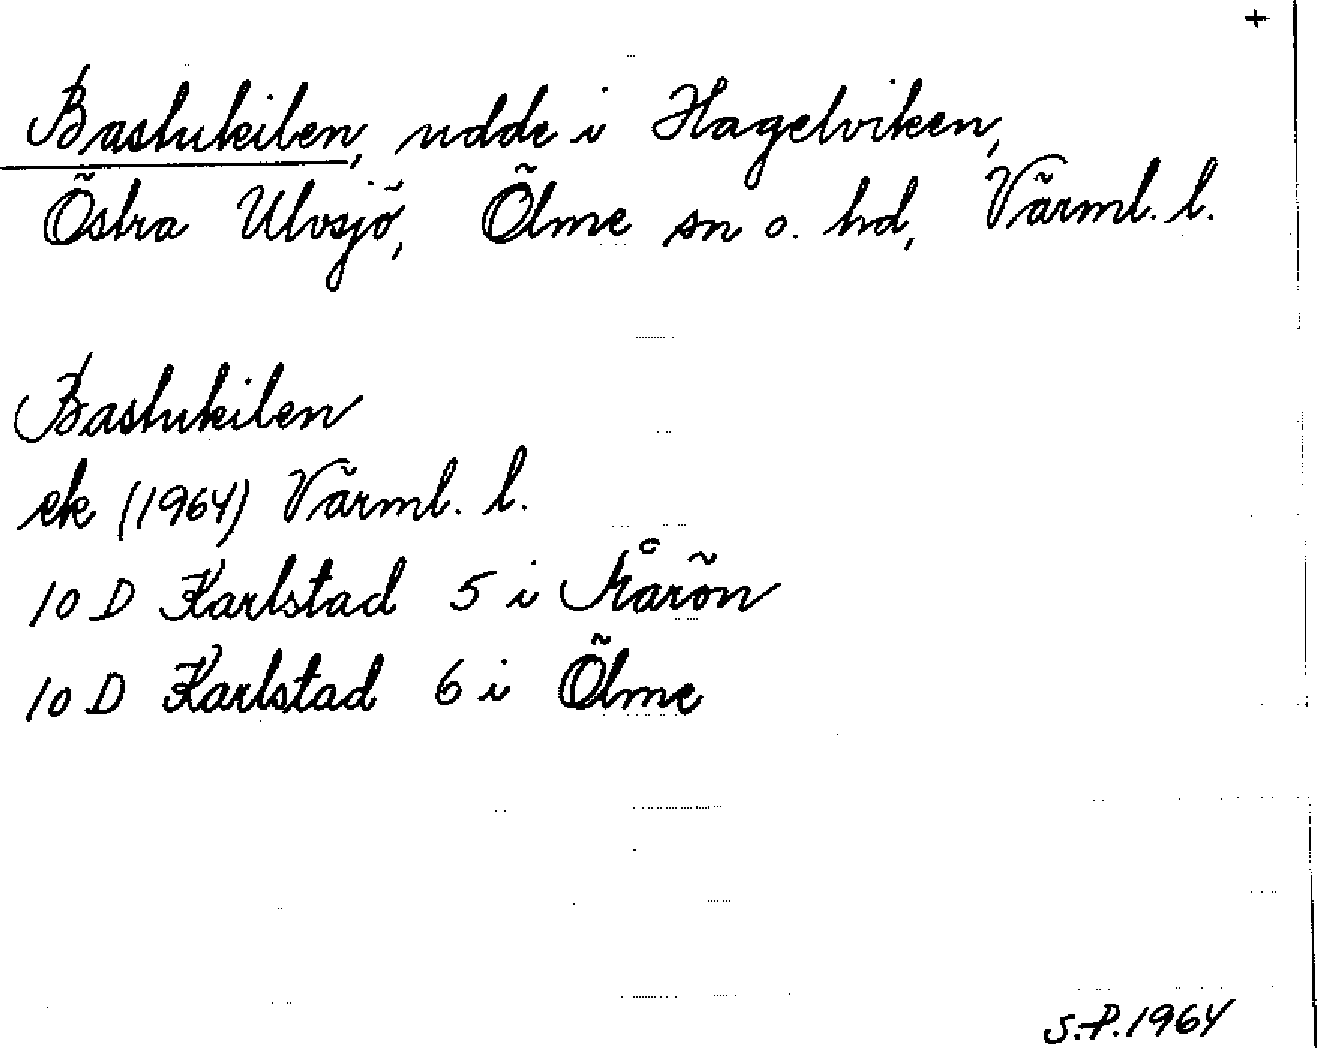 +
Bastukilen, udde i Hagelviken,
Östra Ulvsjö, Ölme sn o. hd, Värml. l.
Bastukilen
ek (1964) Värml. l.
10 D Karlstad 5 i Arön
10 D Karlstad 6 i Ölme
S.P. 1964